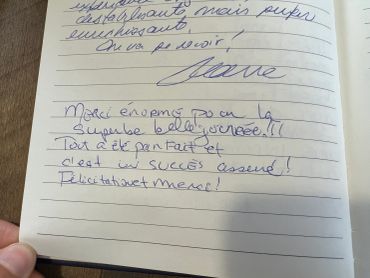 déstabilisante, mais super
enrichissante.
On va se revoir!
Jeanne
Merci énorme pour la
superbe belle journéee!!!
Tout a été parfait et
c'est un succès assuré!
Félicitation et merci!